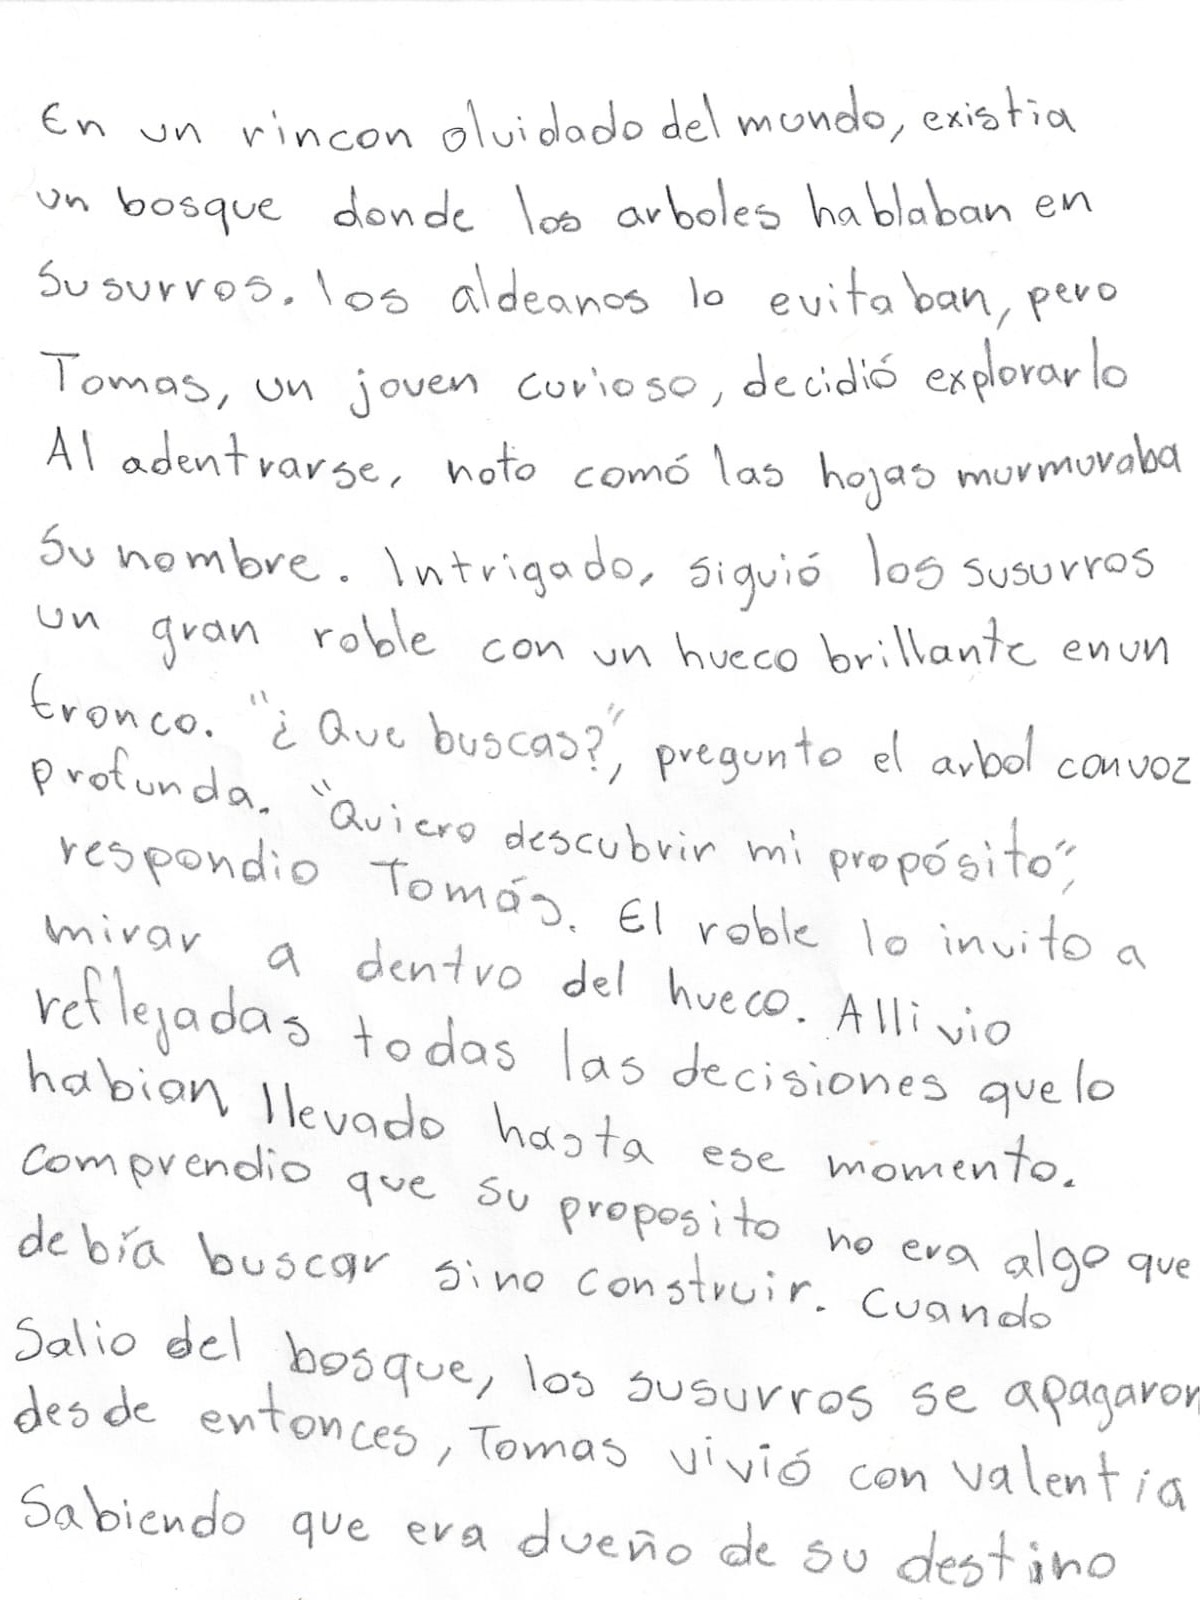 En un rincon olvidado del mundo, existia
un bosque donde los arboles hablaban en
susurros. los aldeanos lo evitaban, pero
Tomas, un joven curioso, decidió explorarlo
Al adentrarse, noto comó las hojas murmuraba
su nombre. Intrigado, siguió los susurros
un gran roble con un hueco brillante en un
tronco. "¿Que buscas?", pregunto el arbol con voz
profunda. "Quiero descubrir mi propósito",
respondio Tomás. El roble lo invito a
mirar a dentro del hueco. Alli vio
reflejadas todas las decisiones que lo
habian llevado hasta ese momento.
Comprendio que su proposito no era algo que
debía buscar sino construir. Cuando
Salio del bosque, los susurros se apagaron
desde entonces, Tomas vivió con valentia
Sabiendo que era dueño de su destino